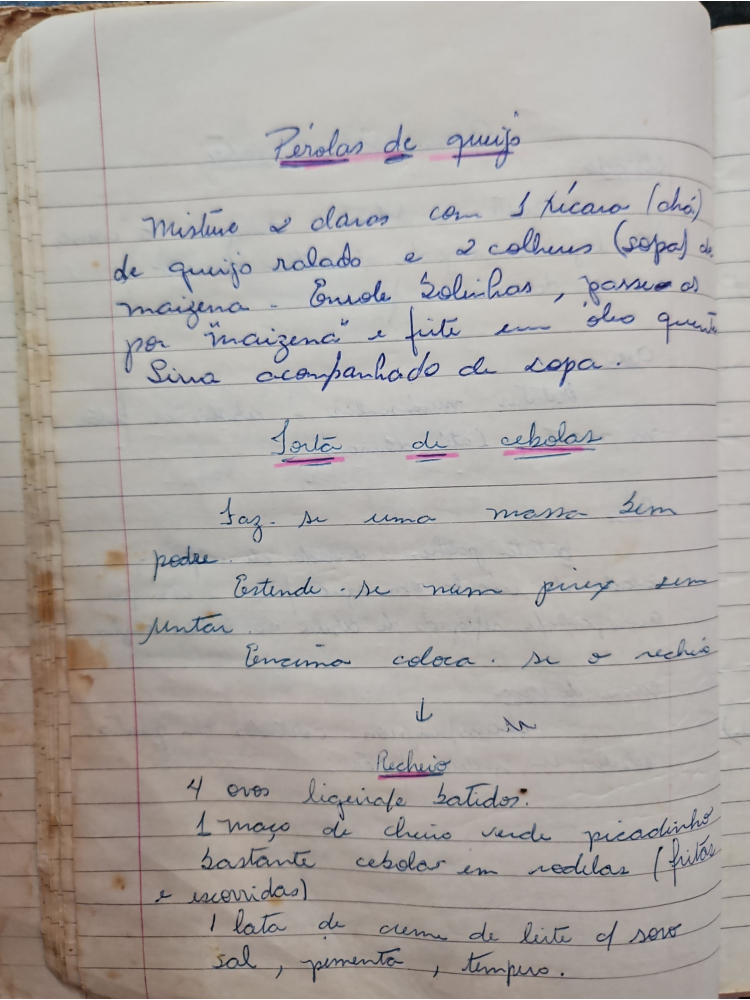 Pérolas de queijo
Misture 2 claras com 1 xícara (chá)
de queijo ralado e 2 colheres (sopa) de
maizena. Enrole bolinhas, passe-as
por "maizena" e frite em óleo quente
Sirva acompanhado de sopa.
Torta de cebolas
Faz-se uma massa bem
podre.
Estende-se num pirex sem
untar.
Encima coloca-se o recheio
↓
Recheio
4 ovos batidos.
1 maço de cheiro verde picadinho
bastante cebolas em rodelas (fritas
e escorridas)
1 lata de creme de leite c/ soro
sal, pimenta, tempero.